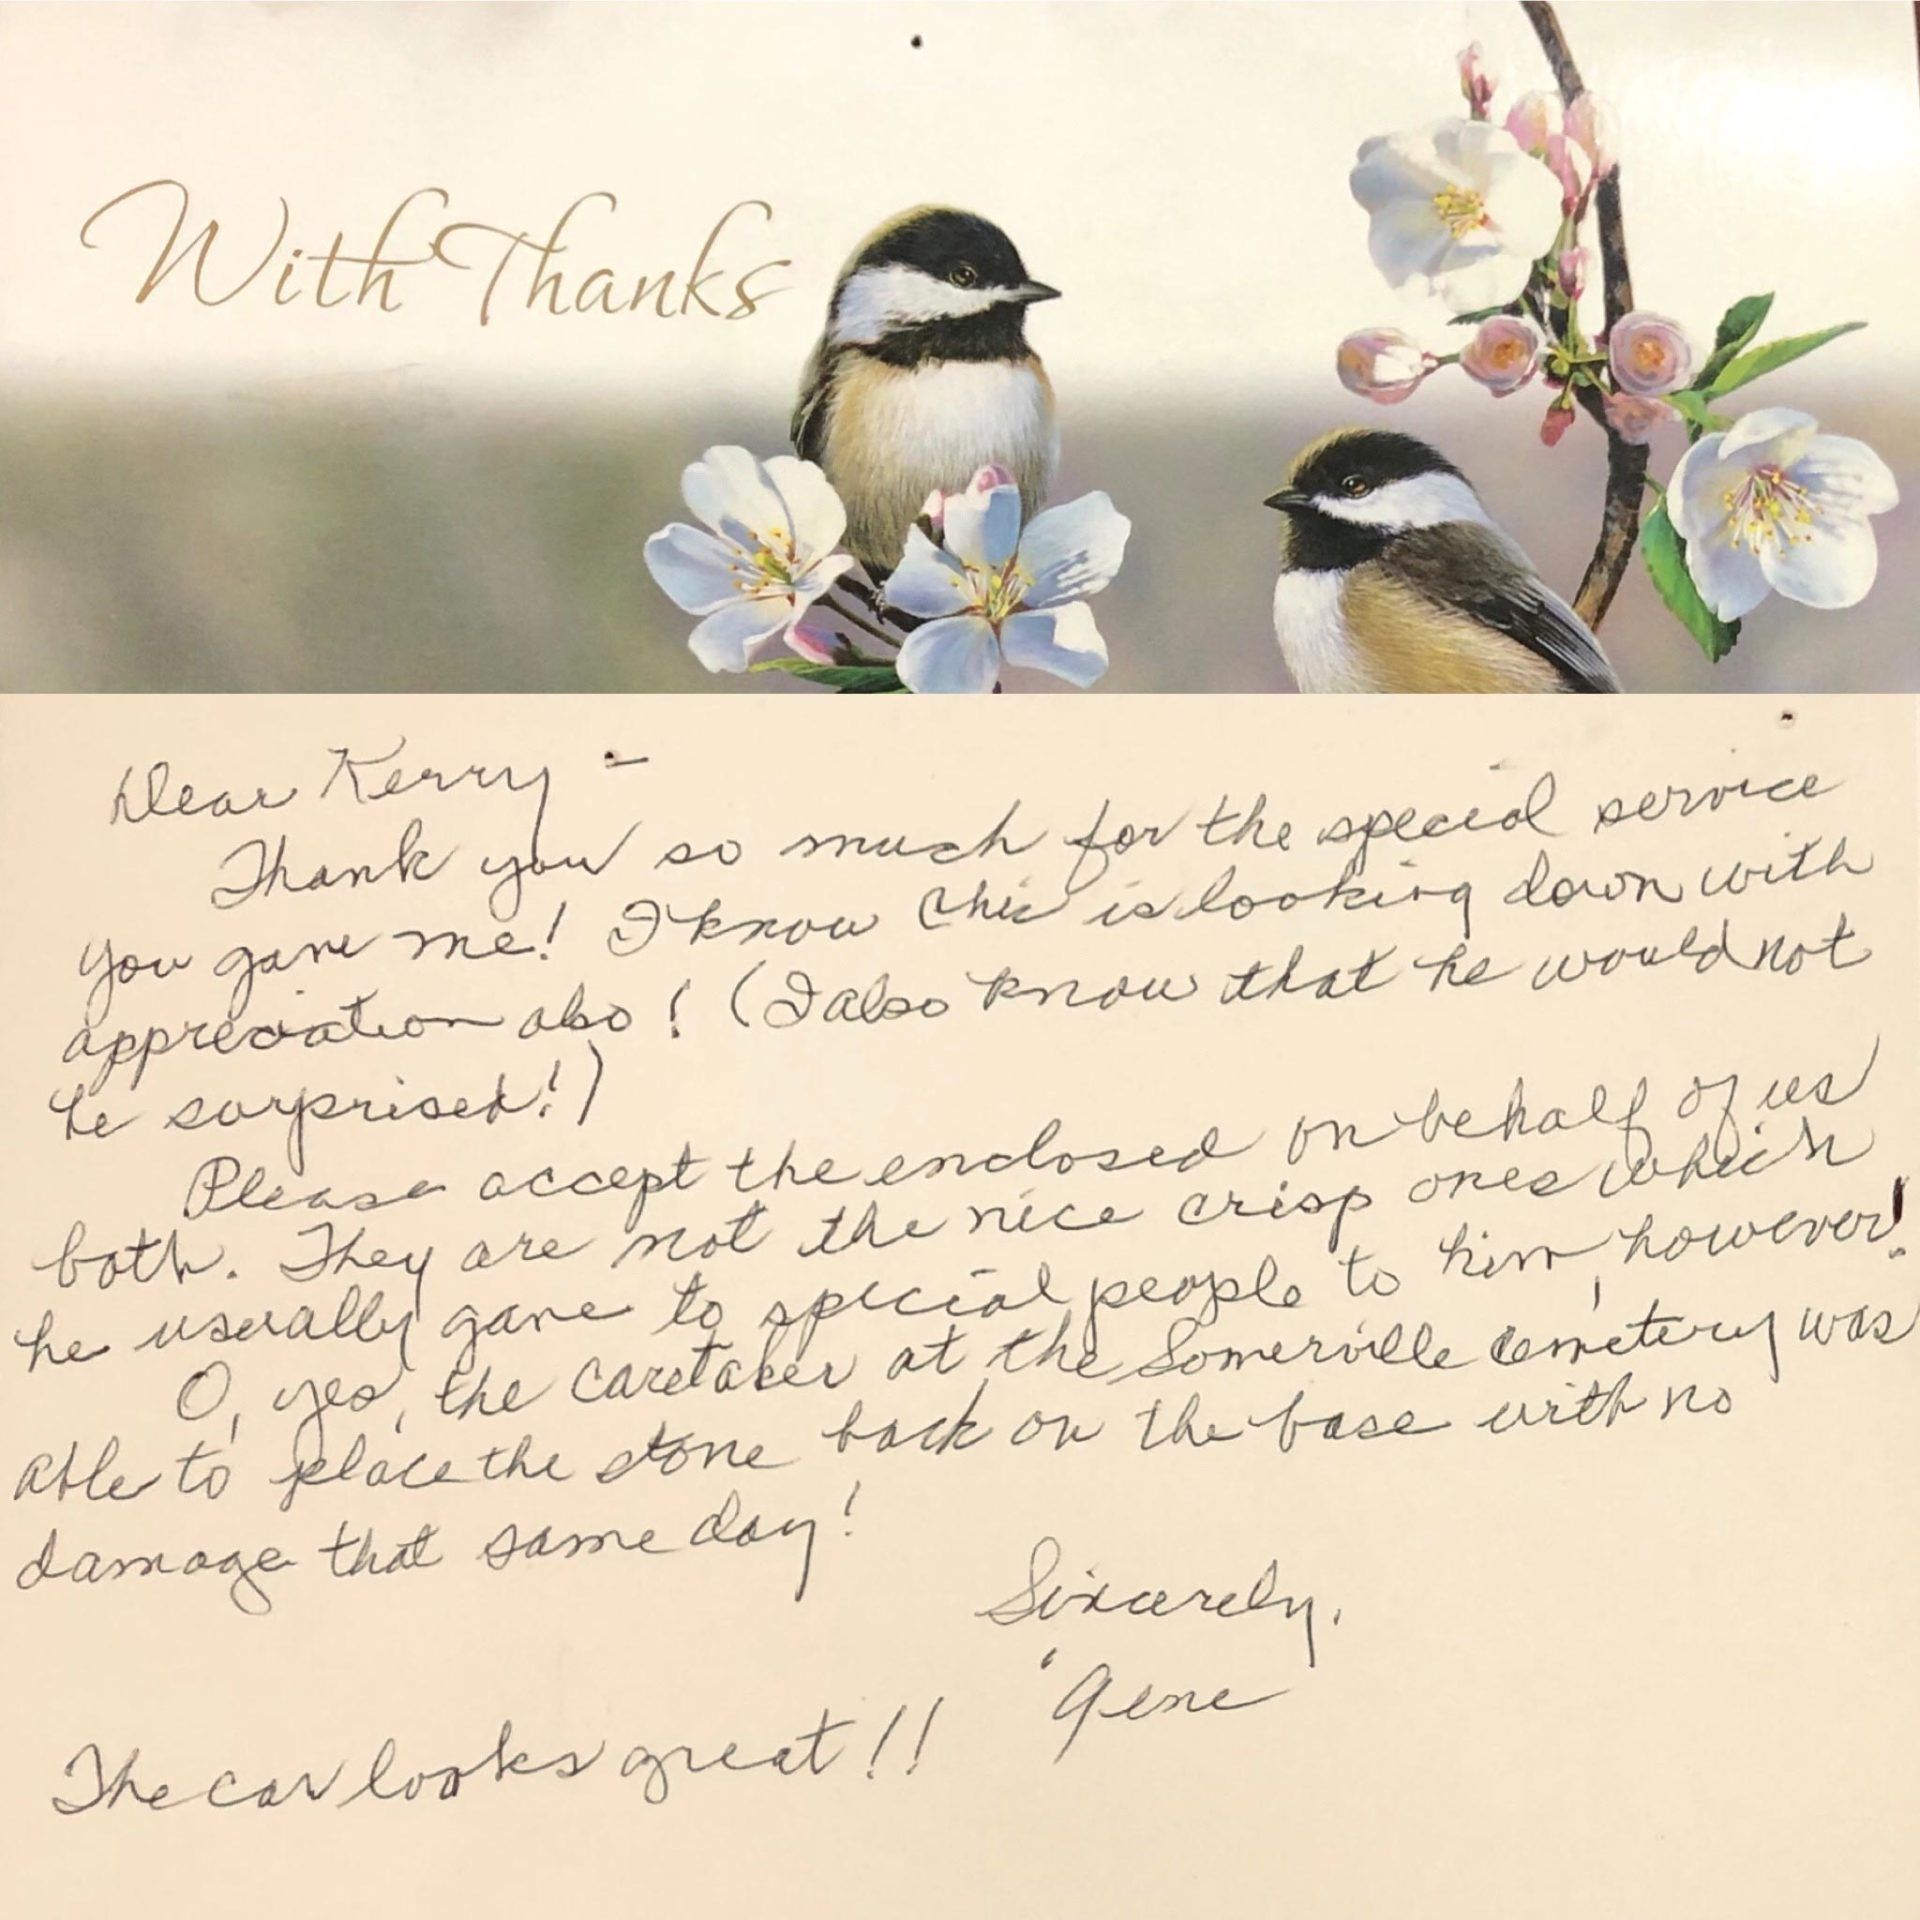 With Thanks
Dear Kerry -
Thank you so much for the special service
you gave me! I know Chic is looking down with
appreciation also! (I also know that he would not
be surprised!)
Please accept the enclosed on behalf of us
both. They are not the nice crisp ones which
he usually gave to special people to him, however!
O, yes, the caretaker at the Somerville cemetery was
able to place the stone back on the base with no
damage that same day!
Sincerely,
Gene
The car looks great!!